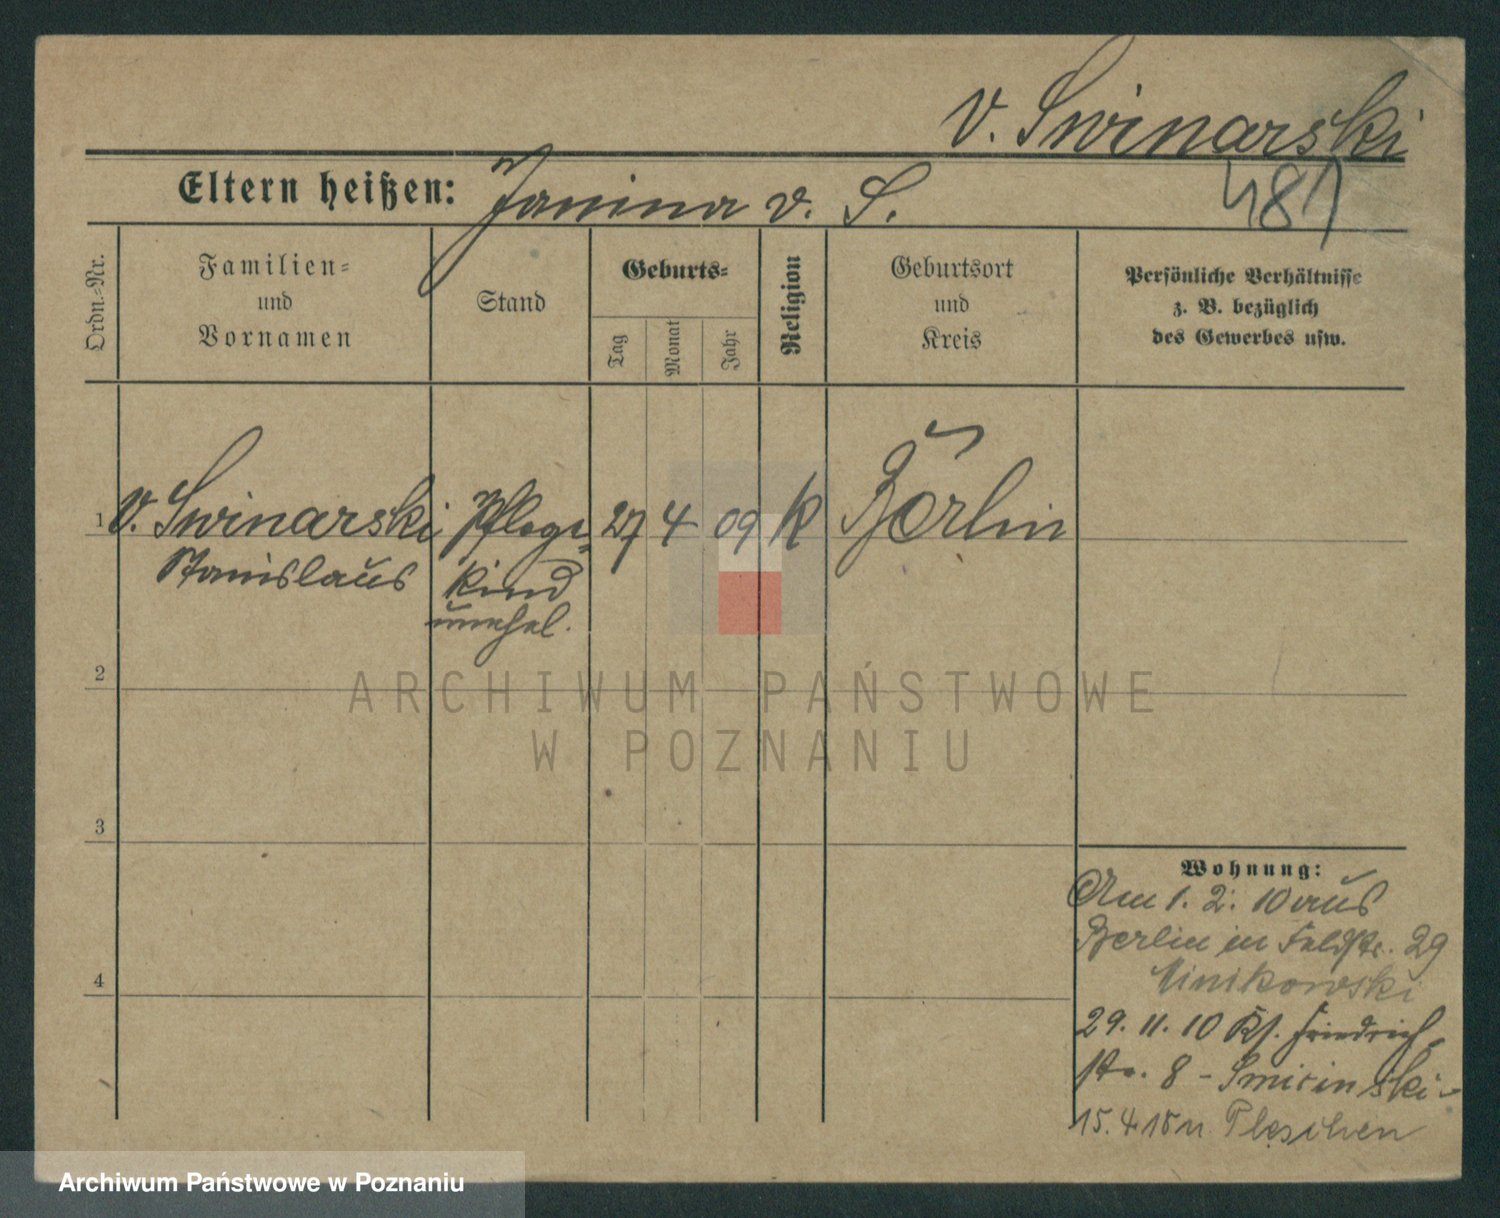 v. Swinarski
Eltern heißen: Janina v. S.
481
Ordn.-Nr.
Familien-
und
Vornamen
Stand
Geburts-
Tag
Monat
Jahr
Religion
Geburtsort
und
Kreis
Persönliche Verhältnisse
z. B. bezüglich
des Gewerbes usw.
1 v. Swinarski Pflege- 27 4 09 k Berlin
Stanislaus kind
unehel.
2
ARCHIWUM PAŃSTWOWE
W POZNANIU
3
Wohnung:
Am 1. 2. 10 aus
Berlin in Feldstr. 29
Minikowski
4
29. 11. 10 Kl. Friedrich-
str. 8 - Smicinski -
15. 4 15 n Pleschen
Archiwum Państwowe w Poznaniu